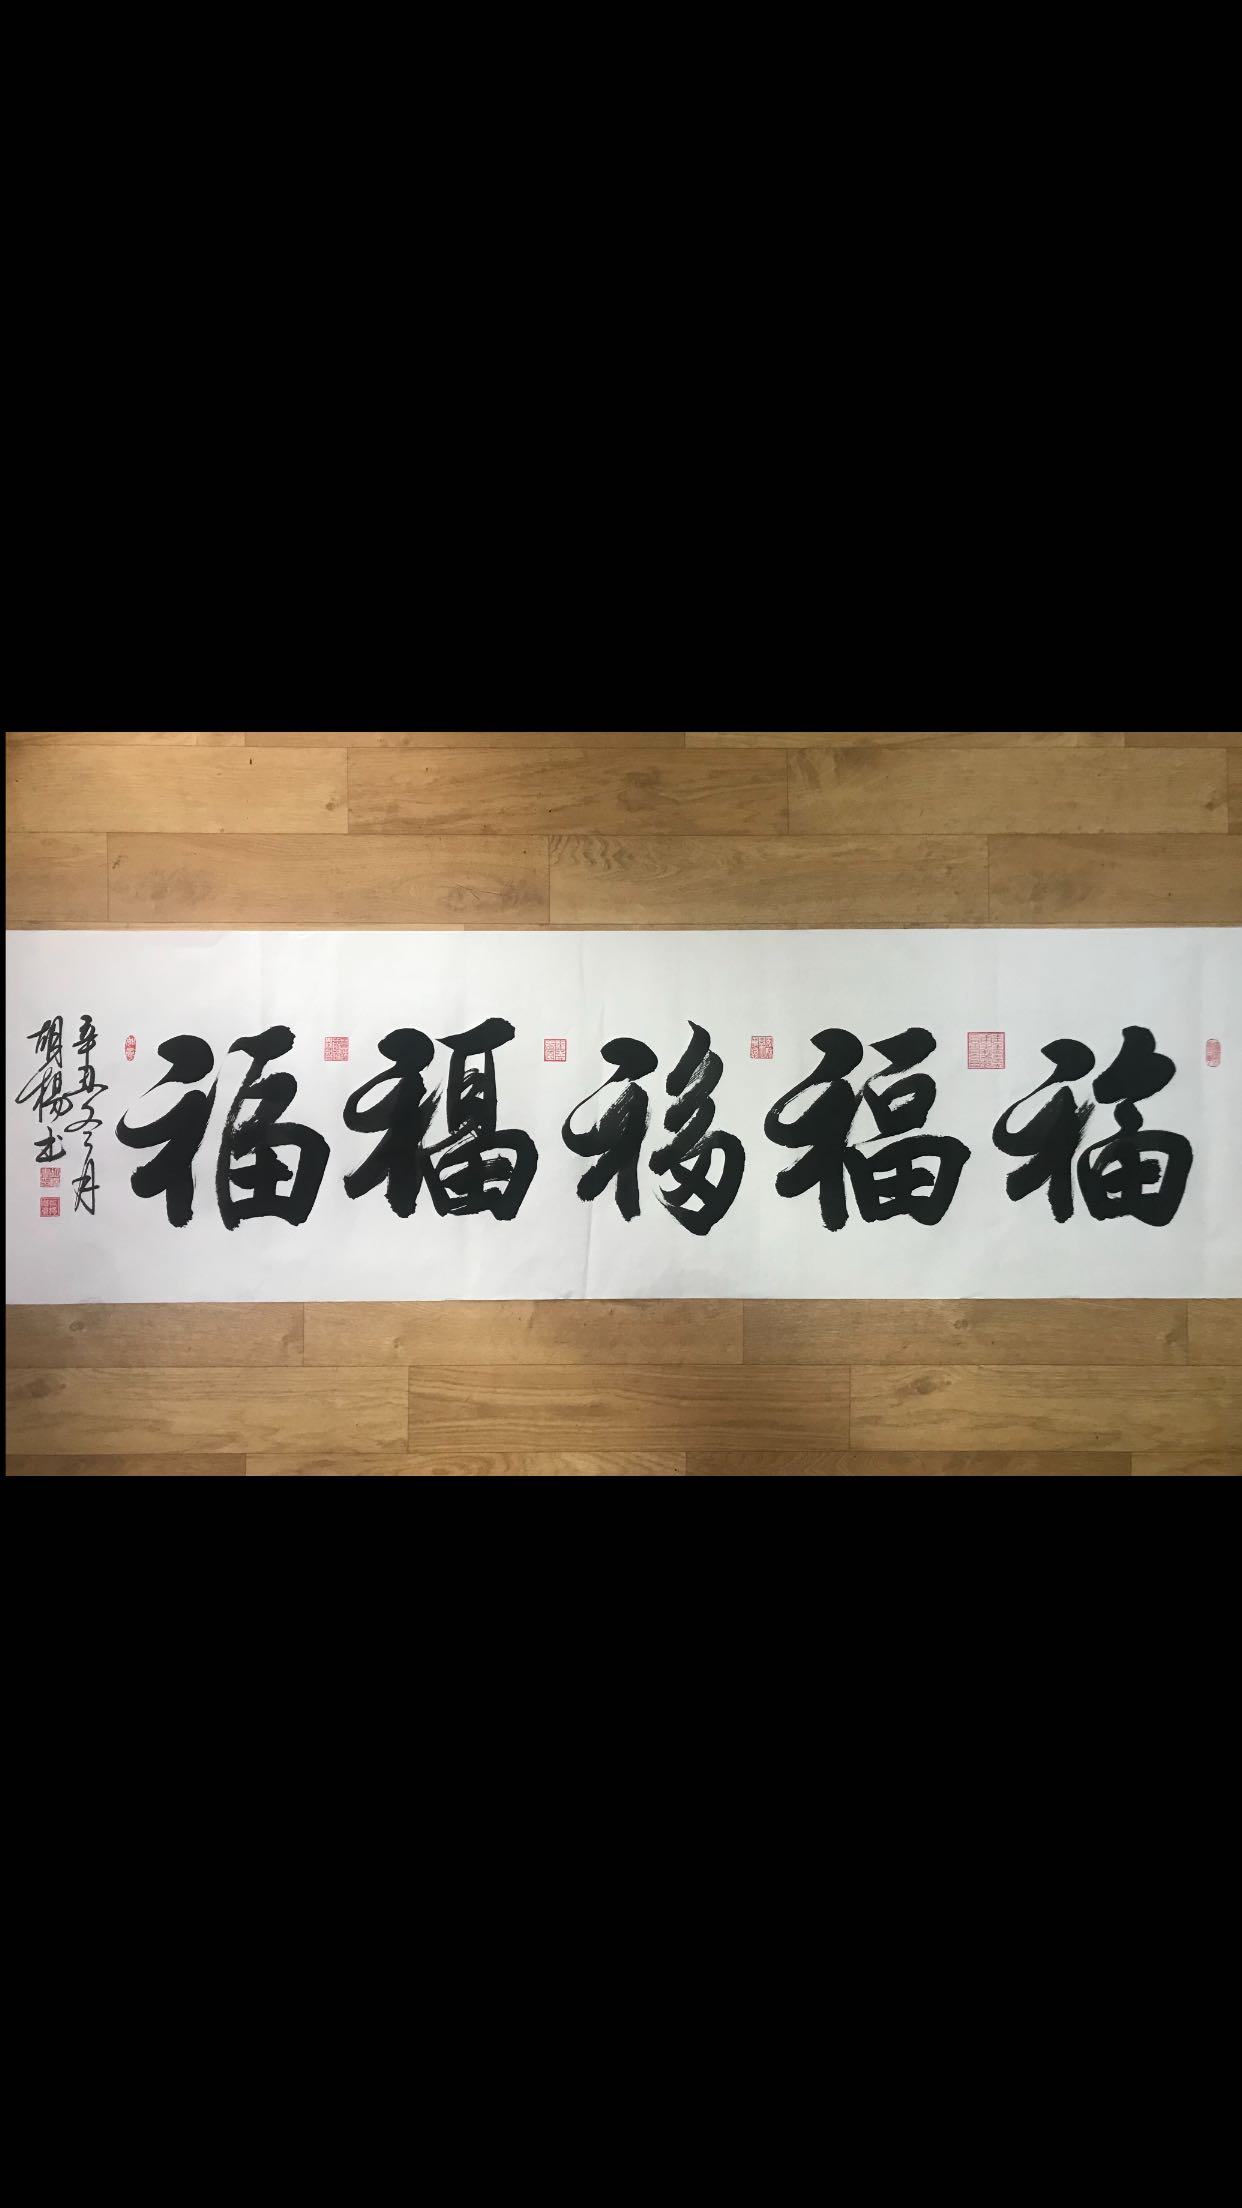 福福福福福
辛丑冬月
胡楊书